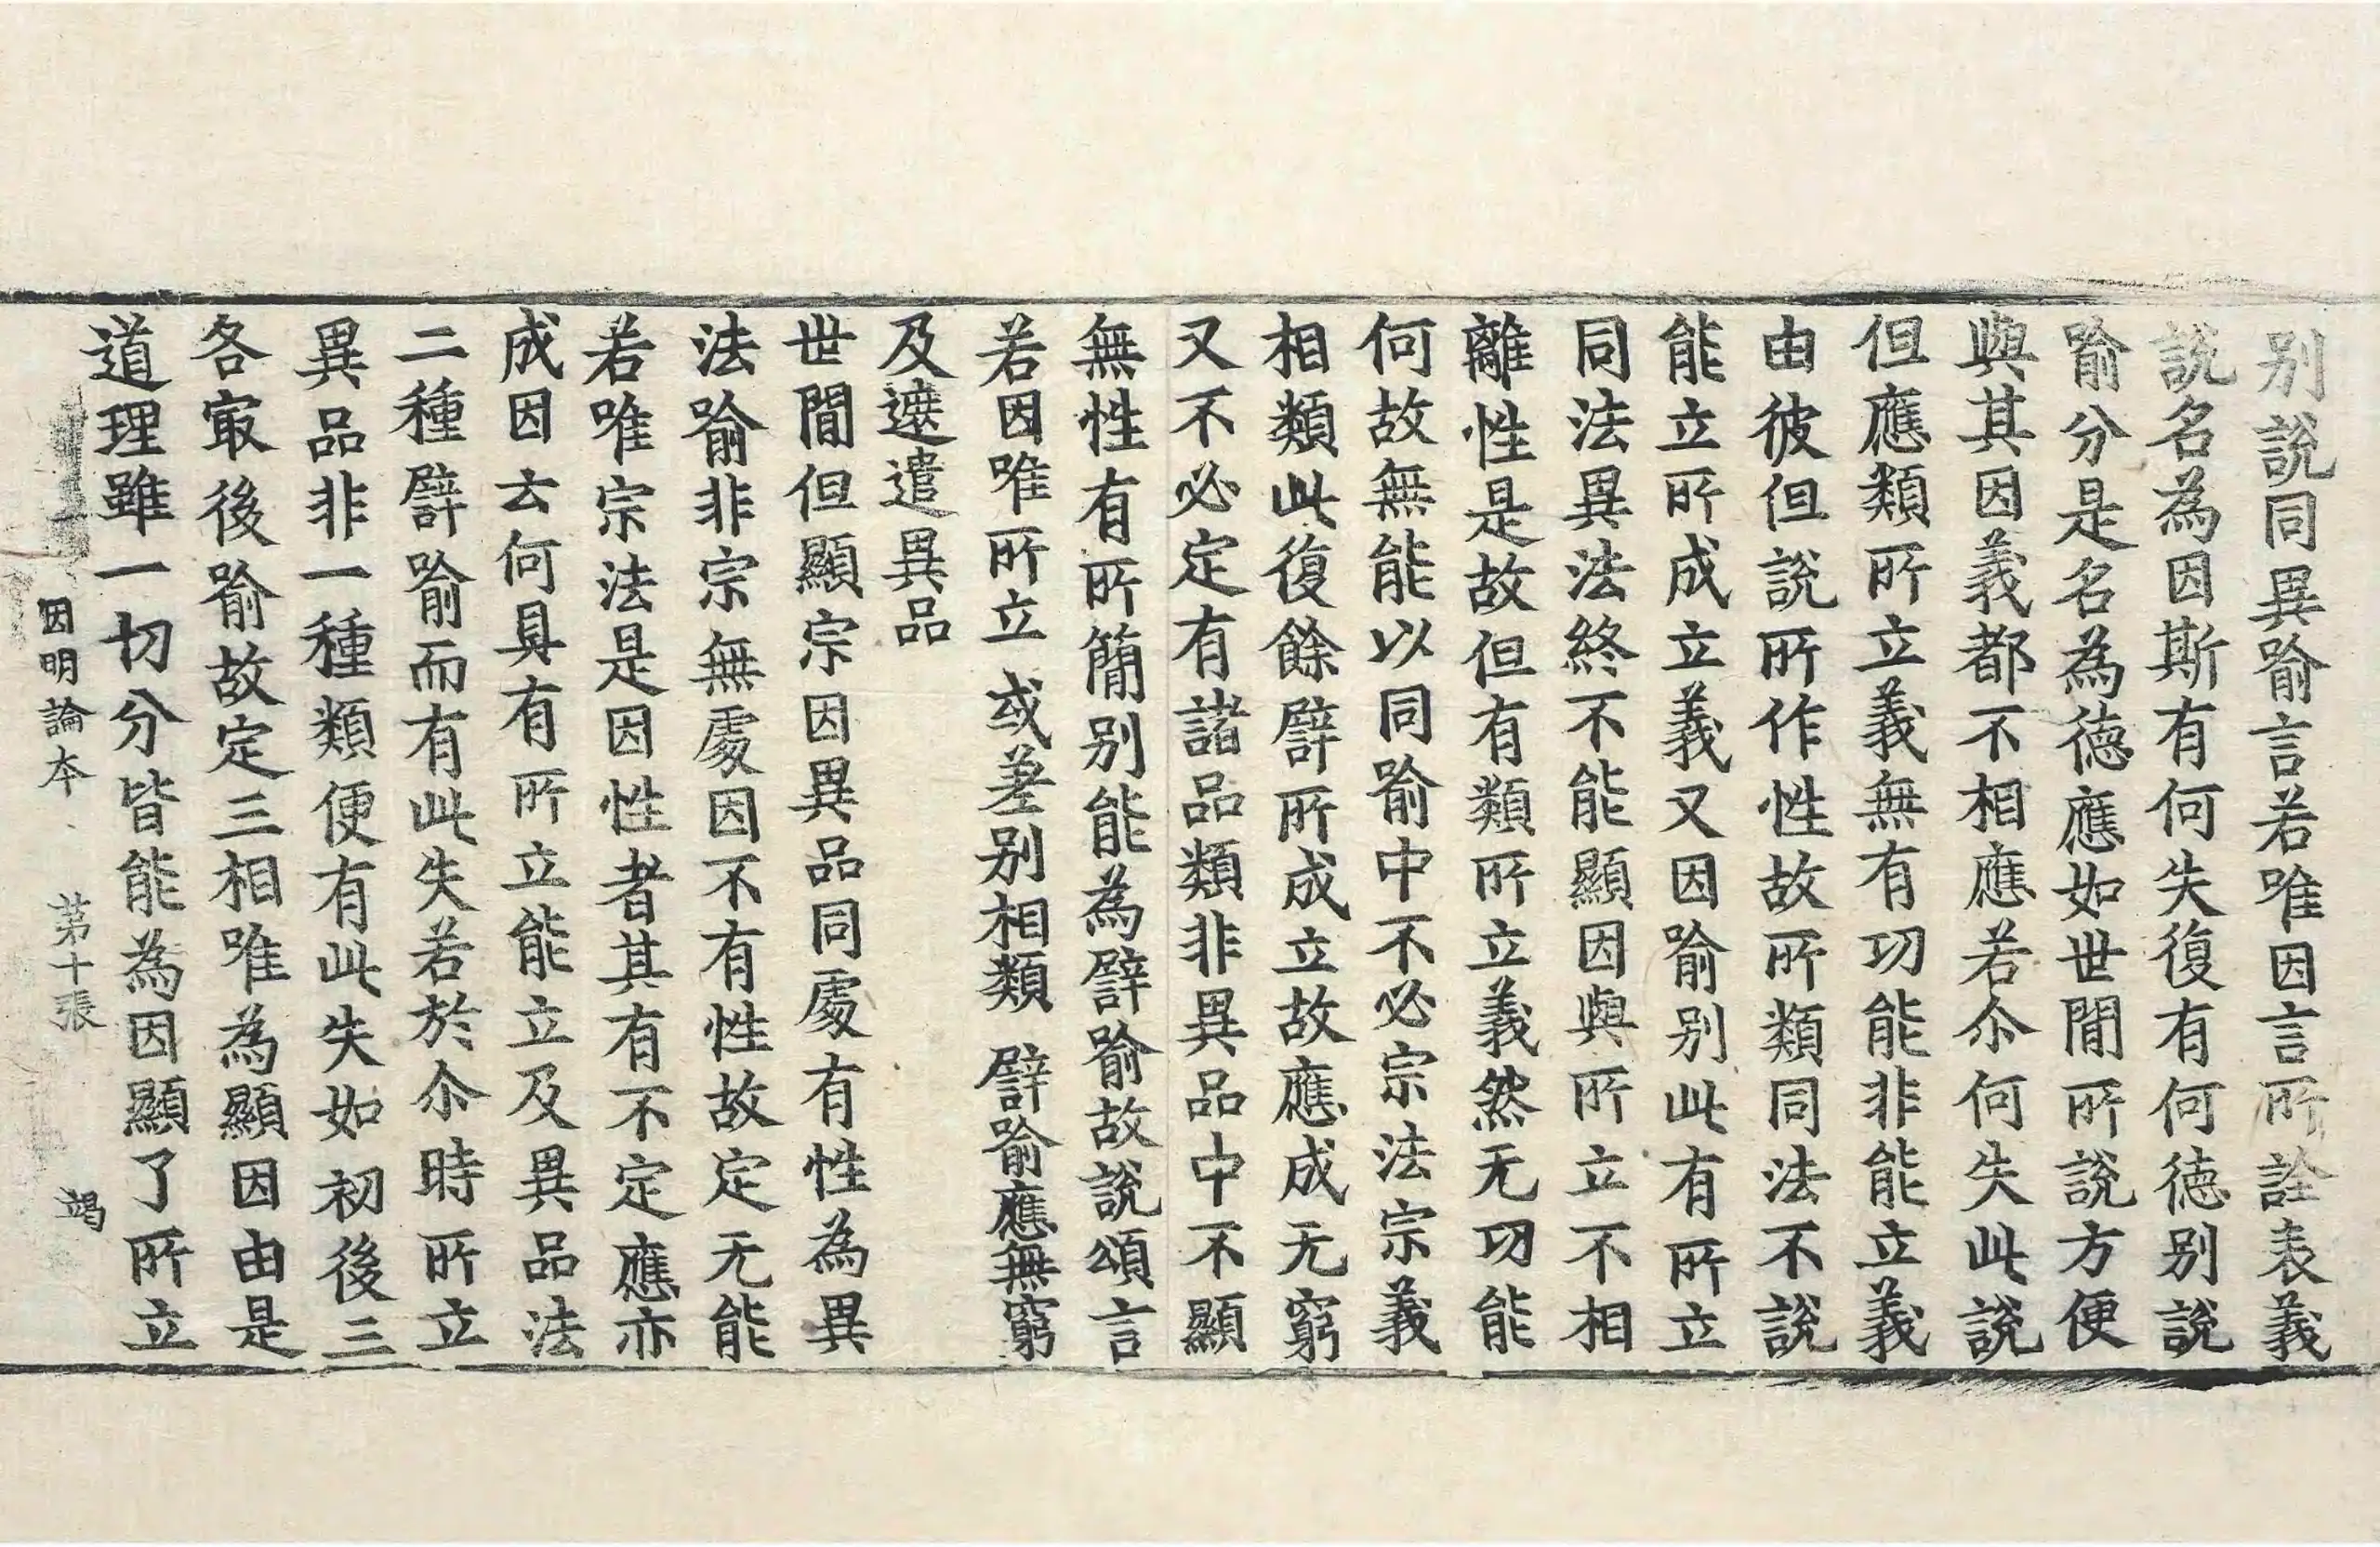 別說同異喻言若唯因言所詮表義
說名為因斯有何失復有何德別說
喻分是名為德應如世間所說方便
與其因義都不相應若尒何失此說
但應類所立義無有功能非能立義
由彼但說所作性故所類同法不說
能立所成立義又因喻別此有所立
同法異法終不能顯因與所立不相
離性是故但有類所立義然无功能
何故無能以同喻中不必宗法宗義
相類此復餘譬所成立故應成无窮
又不必定有諸品類非異品中不顯
無性有所簡別能為譬喻故說頌言
若因唯所立 或差別相類 譬喻應無窮
及遮遣異品
世間但顯宗因異品同處有性為異
法喻非宗無處因不有性故定无能
若唯宗法是因性者其有不定應亦
成因云何具有所立能立及異品法
二種譬喻而有此失若於尒時所立
異品非一種類便有此失如初後三
各冣後喻故定三相唯為顯因由是
道理雖一切分皆能為因顯了所立
因明論本 第十張 竭